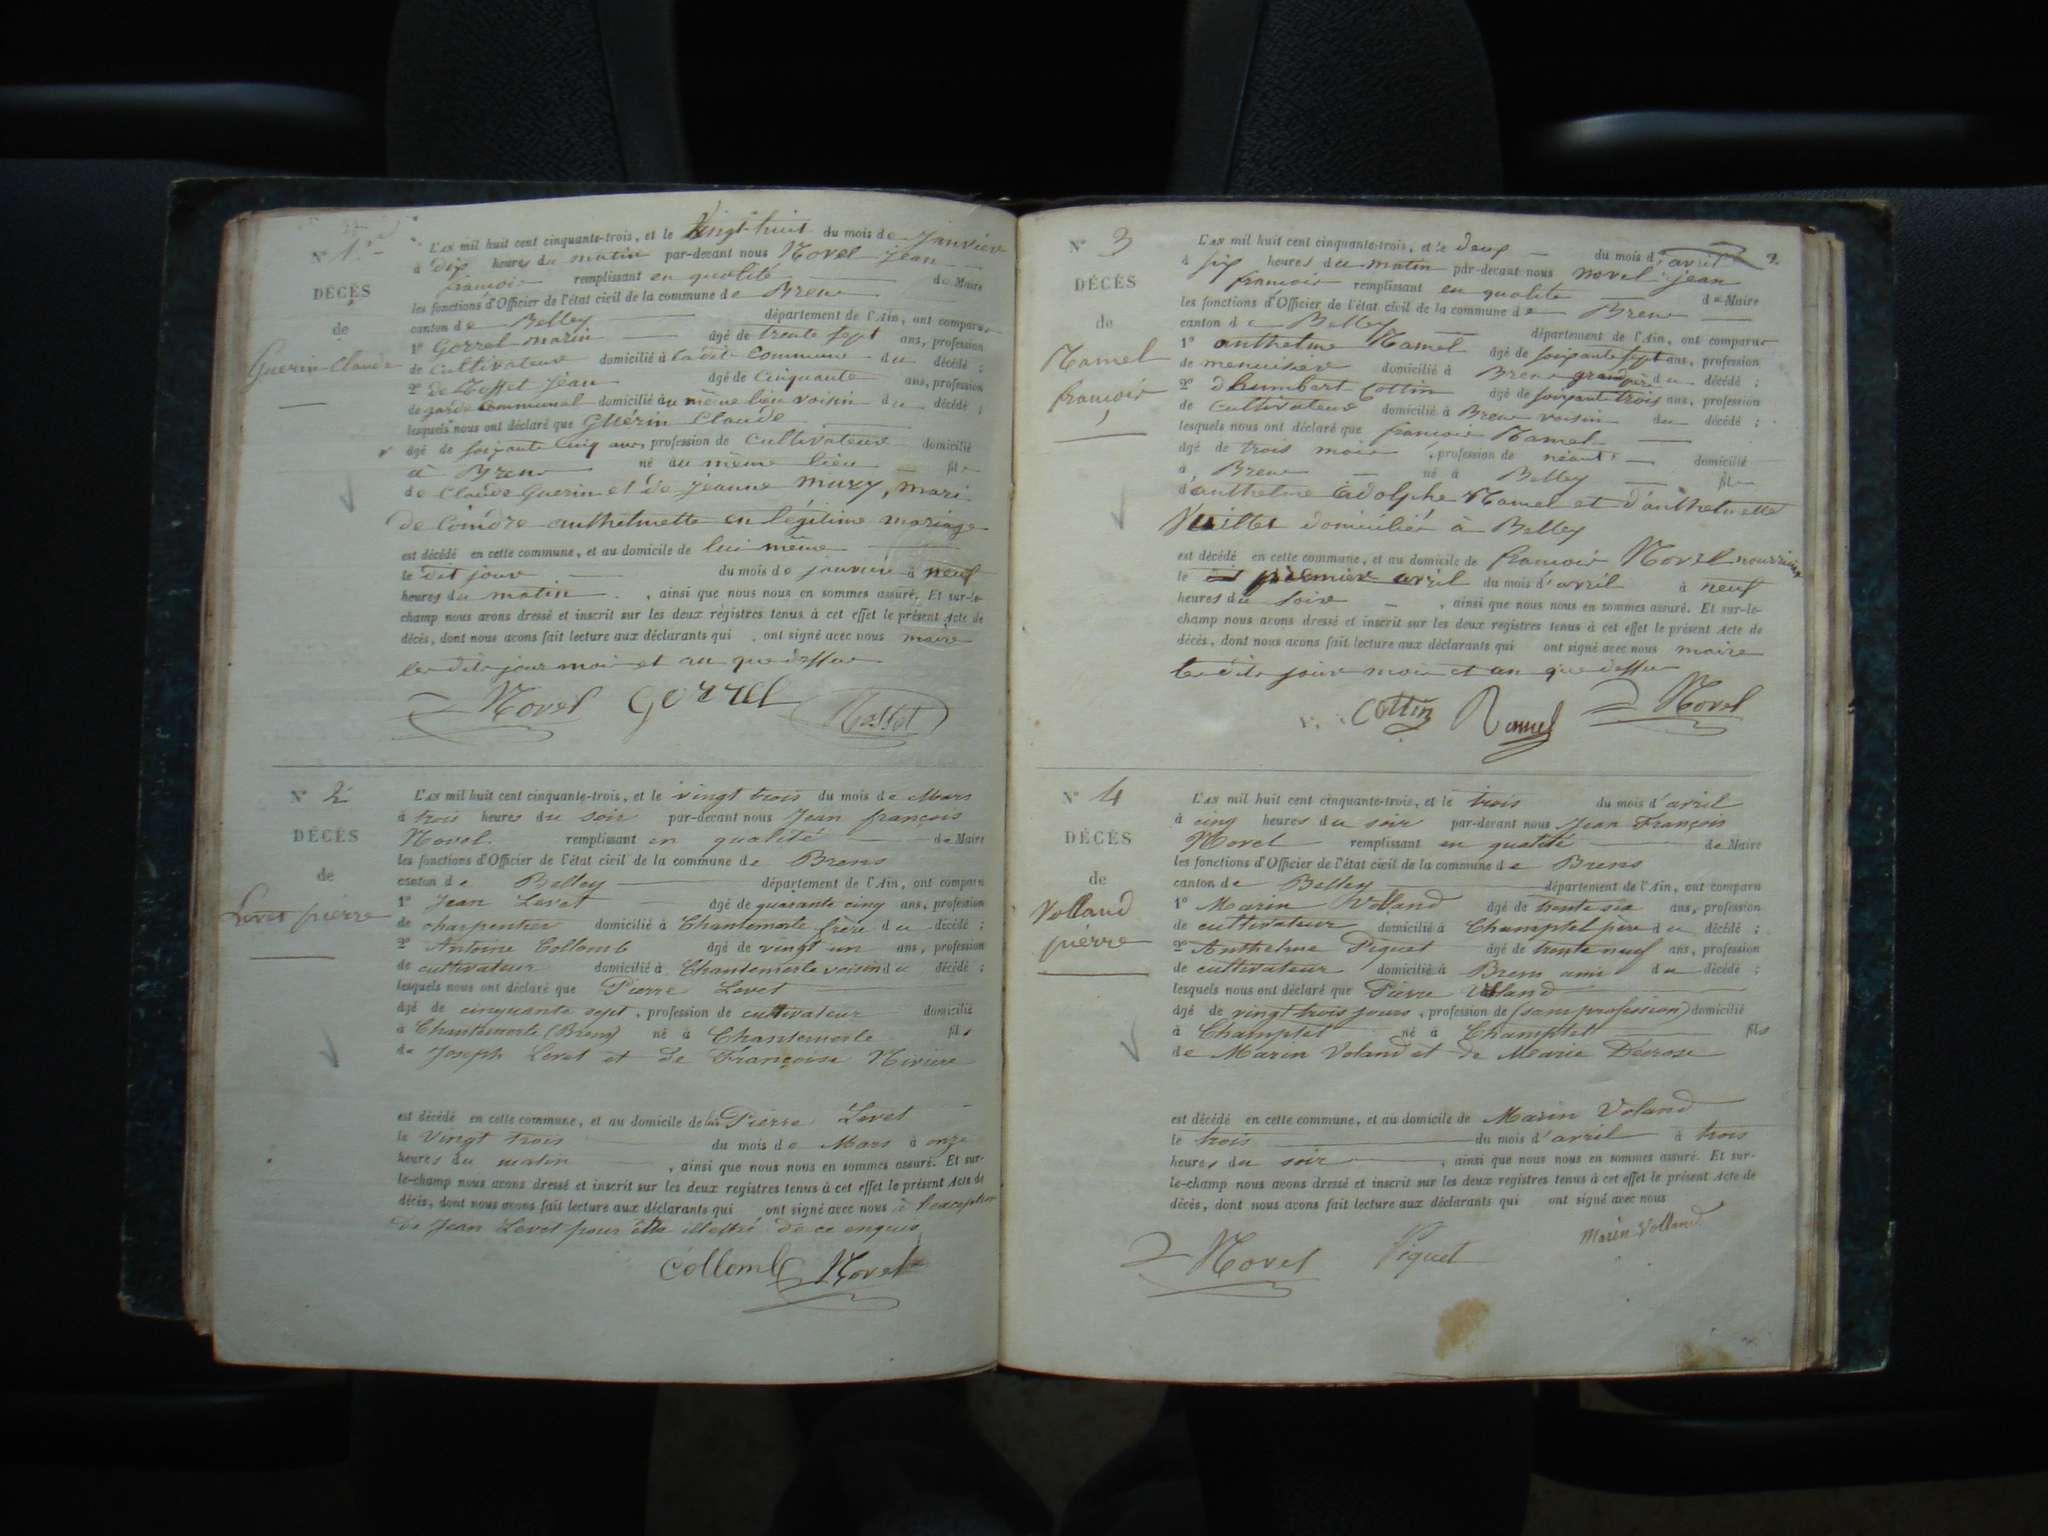 N° 1er
DÉCÈS
de
Guerin Claude
L'AN mil huit cent cinquante-trois, et le Vingt huit du mois de Janvier
à dix heures du matin par-devant nous Novel Jean
françois remplissant en qualité de Maire
les fonctions d'Officier de l'état civil de la commune de Bren
canton de Belley département de l'Ain, ont comparu
1° Gorrel marin âgé de trente sept ans, profession
de Cultivateur domicilié à ladite Commune du décédé ;
2° de Jean âgé de Cinquante ans, profession
de garde Communal domicilié au même lieu voisin du décédé ;
lesquels nous ont déclaré que Guérin Claude
âgé de soixante Cinq ans, profession de Cultivateur domicilié
à Bren né au même lieu fils
de Claude Guerin et de Jeanne mury, mari
de anthelmette en légitime mariage
est décédé en cette commune, et au domicile de lui même
le dit jour du mois de janvier à neuf
heures du matin , ainsi que nous nous en sommes assuré. Et sur-le-
champ nous avons dressé et inscrit sur les deux régistres tenus à cet effet le présent Acte de
décès, dont nous avons fait lecture aux déclarants qui ont signé avec nous maire
les dits jour mois et an que dessus
Novel Gorrel
N° 2
DÉCÈS
de
Levet pierre
L'AN mil huit cent cinquante-trois, et le vingt trois du mois de Mars
à trois heures du soir par-devant nous Jean françois
Novel remplissant en qualité de Maire
les fonctions d'Officier de l'état civil de la commune de Brens
canton de Belley département de l'Ain, ont comparu
1° Jean Levet âgé de quarante cinq ans, profession
de charpentier domicilié à Chantemerle frère du décédé ;
2° Antoine Collomb âgé de vingt un ans, profession
de cultivateur domicilié à Chantemerle voisin du décédé ;
lesquels nous ont déclaré que Pierre Levet
âgé de cinquante sept , profession de cultivateur domicilié
à Chantemerle (Brens) né à Chantemerle fils
de Joseph Levet et de Françoise Rivière
est décédé en cette commune, et au domicile de Pierre Levet
le Vingt trois du mois de Mars à onze
heures du matin , ainsi que nous nous en sommes assuré. Et sur-
le-champ nous avons dressé et inscrit sur les deux registres tenus à cet effet le présent Acte de
décès, dont nous avons fait lecture aux déclarants qui ont signé avec nous à l'exception
de Jean Levet pour être illettré de ce enquis
Collomb Novel
N° 3
DÉCÈS
de
Ramel
françois
2
L'AN mil huit cent cinquante-trois, et le deux du mois d'avril
à six heures du matin par-devant nous novel jean
françois remplissant en qualité de Maire
les fonctions d'Officier de l'état civil de la commune de Bren
canton de Belley département de l'Ain, ont comparu
1° anthelme Ramel âgé de soixante sept ans, profession
de menuisier domicilié à Bren grand père du décédé ;
2° dhumbert Cottin âgé de soixante trois ans, profession
de Cultivateur domicilié à Bren voisin du décédé ;
lesquels nous ont déclaré que françois Ramel
âgé de trois mois , profession de néant domicilié
à Bren né à Belley fils
d'anthelme adolphe Ramel et d'anthelmette
Vuillet domiciliés à Belley
est décédé en cette commune, et au domicile de françois Novel nourricier
le premier avril du mois d'avril à neuf
heures du soir , ainsi que nous nous en sommes assuré. Et sur-le-
champ nous avons dressé et inscrit sur les deux registres tenus à cet effet le présent Acte de
décès, dont nous avons fait lecture aux déclarants qui ont signé avec nous maire
les dits jour mois et an que dessus
Cottin Ramel Novel
N° 4
DÉCÈS
de
Volland
pierre
L'AN mil huit cent cinquante-trois, et le trois du mois d'avril
à cinq heures du soir par-devant nous Jean François
Novel remplissant en qualité de Maire
les fonctions d'Officier de l'état civil de la commune de Brens
canton de Belley département de l'Ain, ont comparu
1° Marin Volland âgé de trente six ans, profession
de cultivateur domicilié à Champtel père du décédé ;
2° Anthelme Piquet âgé de trente neuf ans, profession
de cultivateur domicilié à Brens ami du décédé ;
lesquels nous ont déclaré que Pierre Voland
âgé de vingt trois jours , profession de (sans profession) domicilié
à Champtel né à Champtel fils
de Marin Voland et de Marie Decrose
est décédé en cette commune, et au domicile de Marin Voland
le trois du mois d'avril à trois
heures du soir , ainsi que nous nous en sommes assuré. Et sur-
le-champ nous avons dressé et inscrit sur les deux registres tenus à cet effet le présent Acte de
décès, dont nous avons fait lecture aux déclarants qui ont signé avec nous
Novel Piquet Marin Volland